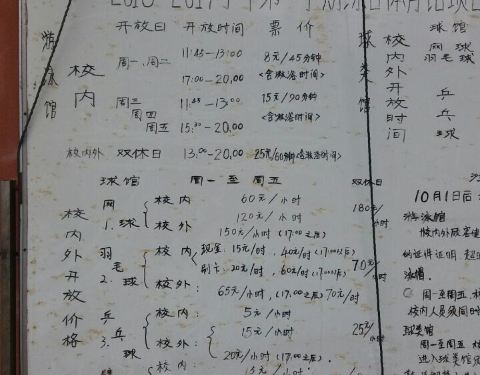 2016-2017
游泳馆
校内
开放日 开放时间 票价
周一、周二 11:45-13:00 8元/45分钟
17:00-20:00 <含淋浴时间>
周三 11:45-13:00 15元/90分钟
周四 <含淋浴时间>
周五 15:30-20:00
校内外 双休日 13:00-20:00 25元/60分钟<含淋浴时间>
球类馆
校内外开放时间
球馆
网球
羽毛球
乒乓球
校内外开放价格
球馆 周一至周五 双休日
1.网球 校内 60元/小时 180元/小时
校外 120元/小时
150元/小时(17:00之后)
2.羽毛球 校内 现金:15元/时,40元/时(17:00以后) 70元/小时
刷卡:20元/时,60元/时(17:00以后)
校外: 65元/小时,(17:00之后)70元/时
3.乒乓球 校内: 5元/小时 25元/小时
校外: 15元/小时
20元/小时(17:00之后).
校内:
10月1日后
游泳馆
校内外
的证件证明
周一至周五
校内人员须
球类馆
周一至周五
进入球类馆